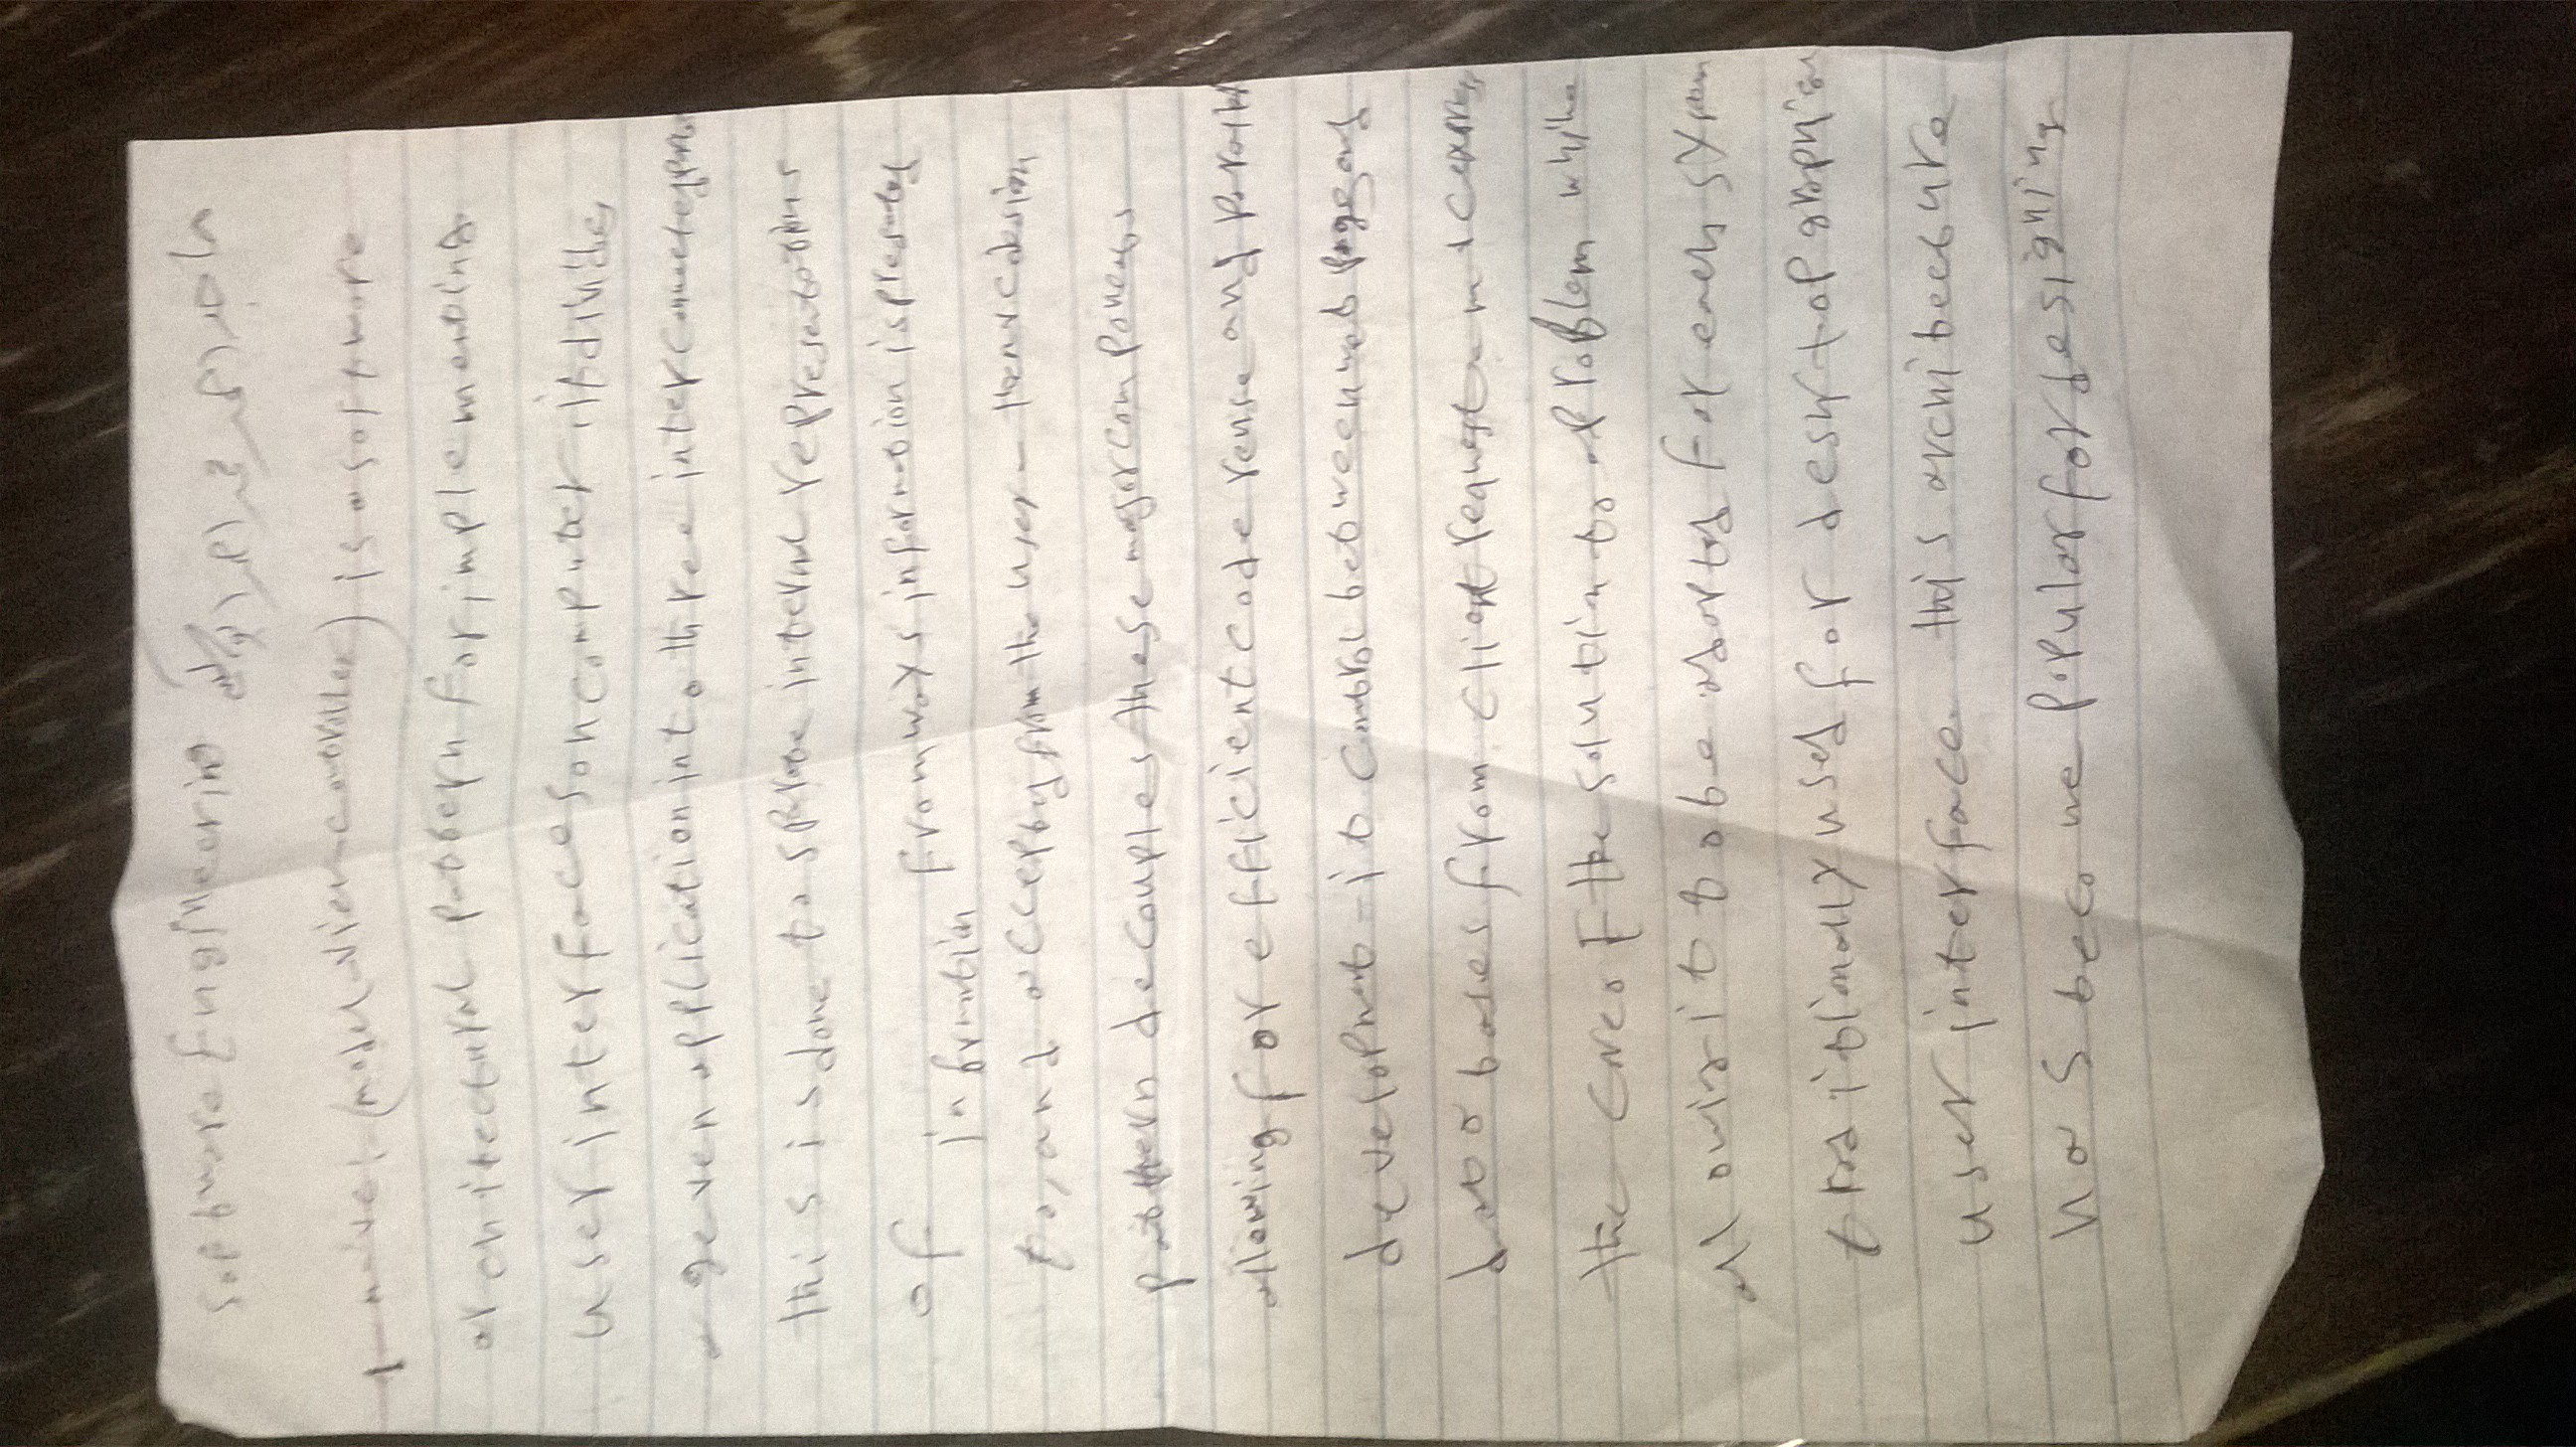 Software Engineering
1 m.v.c: (model-view-controller) is a software
architectural pattern for implementing
user interfaces on computer .it divides
a geven application into three interconnected parts
this is done to sparate internal representations
of information from ways information is presented
to, and accepted from the user - the mvc design
pattern decouples these major components
allowing for efficient code reuse and parallel
development - it control between web page and
data bases from client request - mvc express
the core of the solution to a problem while
allowing it to be adapted for each system
traditionally used for desktop graphical
user interface this architecture
has become popular for designing